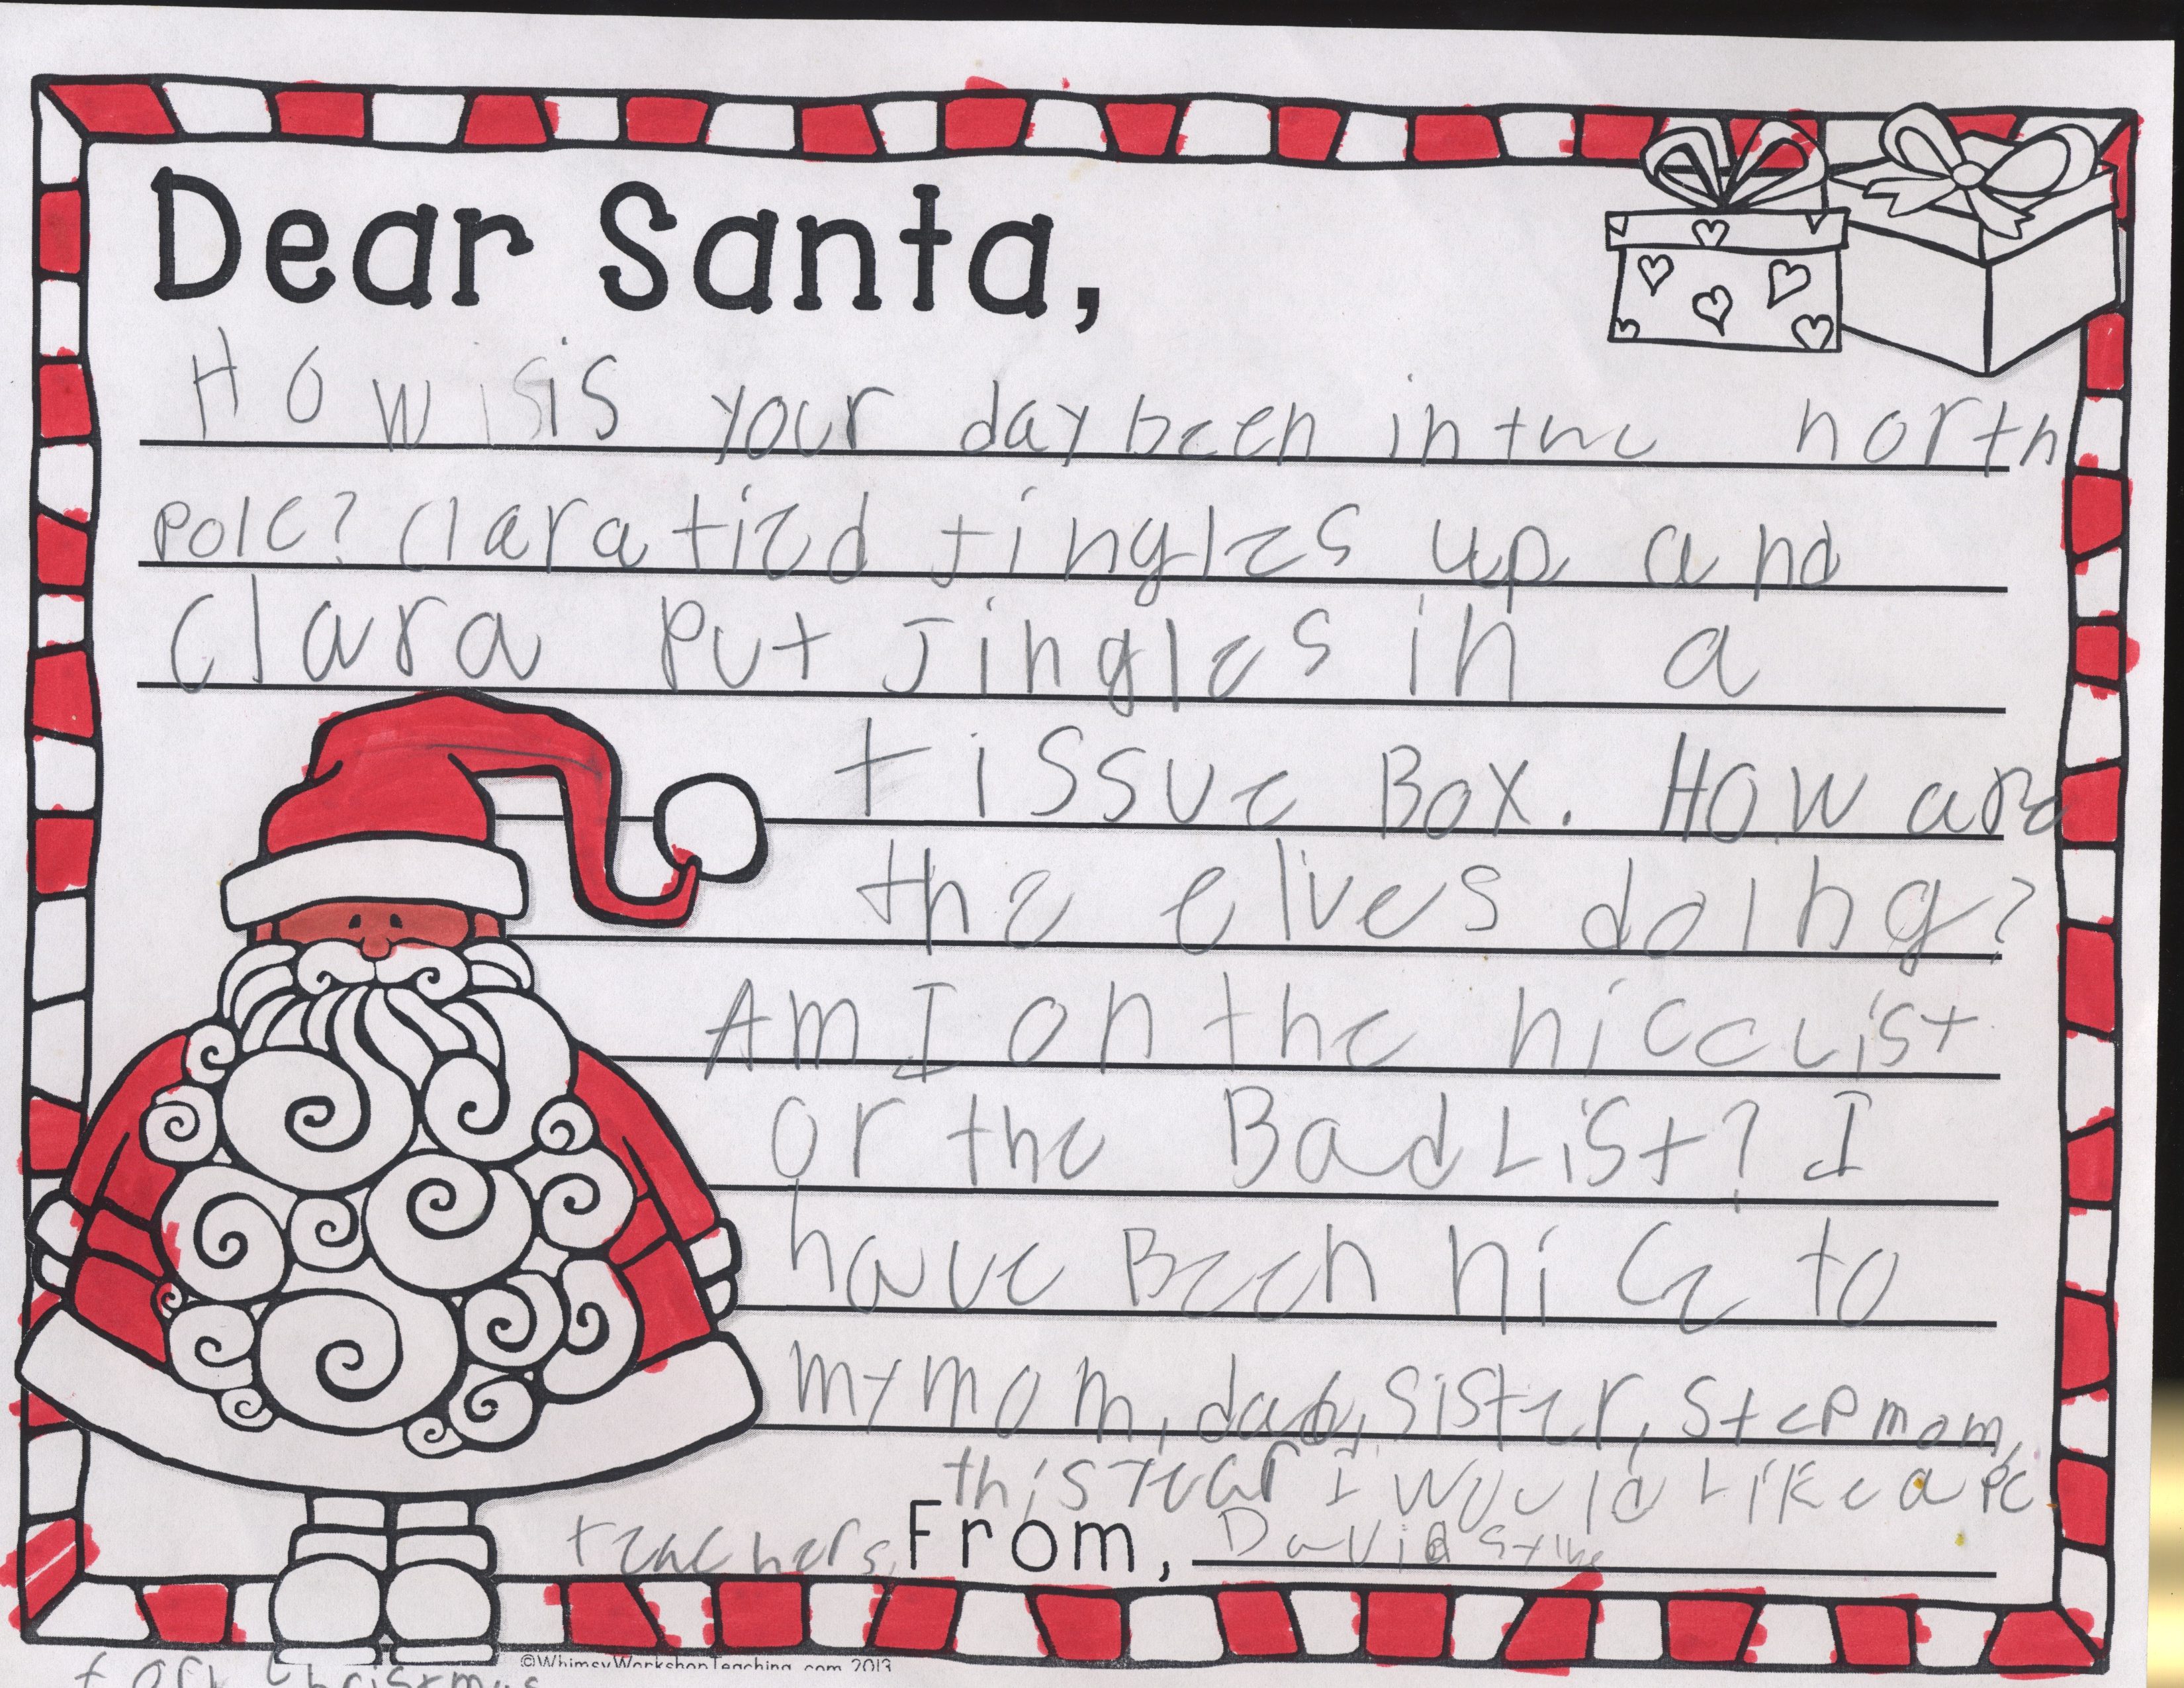 Dear Santa,
How is is your day been in the north
pole? Clara tied Jingles up and
Clara put Jingles in a
tissue Box. How are
the elves doing?
Am I on the nice List
or the Bad List? I
have Been nice to
my mom, dad, sister, step mom,
this year I would Like a PC
teachers, From, David
for Christmas
©WhimsyWorkshopTeaching.com 2013